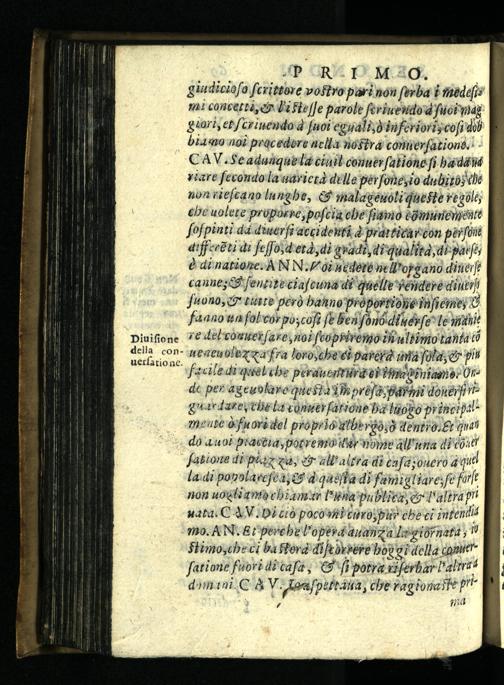 P R I M O.
giudicioso scrittore vostro pari non serba i medesi-
mi concetti, & l'istesse parole scriuendo à suoi mag
giori, et scriuendo à suoi eguali, ò inferiori, così dob
biamo noi procedere nella nostra conuersatione.
CAV. Se adunque la ciuil conuersatione si ha da va
riare secondo la varietà delle persone, io dubito, che
non riescano lunghe, & malageuoli queste regole,
che uolete proporre, poscia che siamo cõmunemente
sospinti da diuersi accidenti à pratticar con persone
differẽti di sesso, d'età, di gradi, di qualità, di paese,
è di natione. ANN. Voi uedete nell'organo diuerse
canne; & sentite ciascuna di quelle rendere diuerso
suono, & tutte però hanno proportione insieme, &
fanno un sol corpo; così se ben sono diuerse le manie
re del conuersare, noi scopriremo in ultimo tanta cõ
ueneuolezza fra loro, che ci parerà una sola, & più
facile di quel che perauentura ci imaginiamo. On-
de per ageuolare questa impresa, parmi douersi ri-
guardare, che la conuersatione ha luogo principal-
mente ò fuori del proprio albergo, ò dentro. Et quan
do a uoi piaccia, potremo dar nome all'una di cõuer
satione di piazza, & all'altra di casa; ouero a quel
la di popolaresca, & à questa di famigliare; se forse
non uogliamo chiamar l'una publica, & l'altra pri
uata. CAV. Di ciò poco mi curo, pur che ci intendia
mo. AN. Et perche l'opera auanza la giornata, io
stimo, che ci basterà discorrere hoggi della conuer-
satione fuori di casa, & si potrà riserbar l'altra a
domani. CAV. Io aspettaua, che ragionaste pri-
ma
Diuisione
della con-
uersatione.